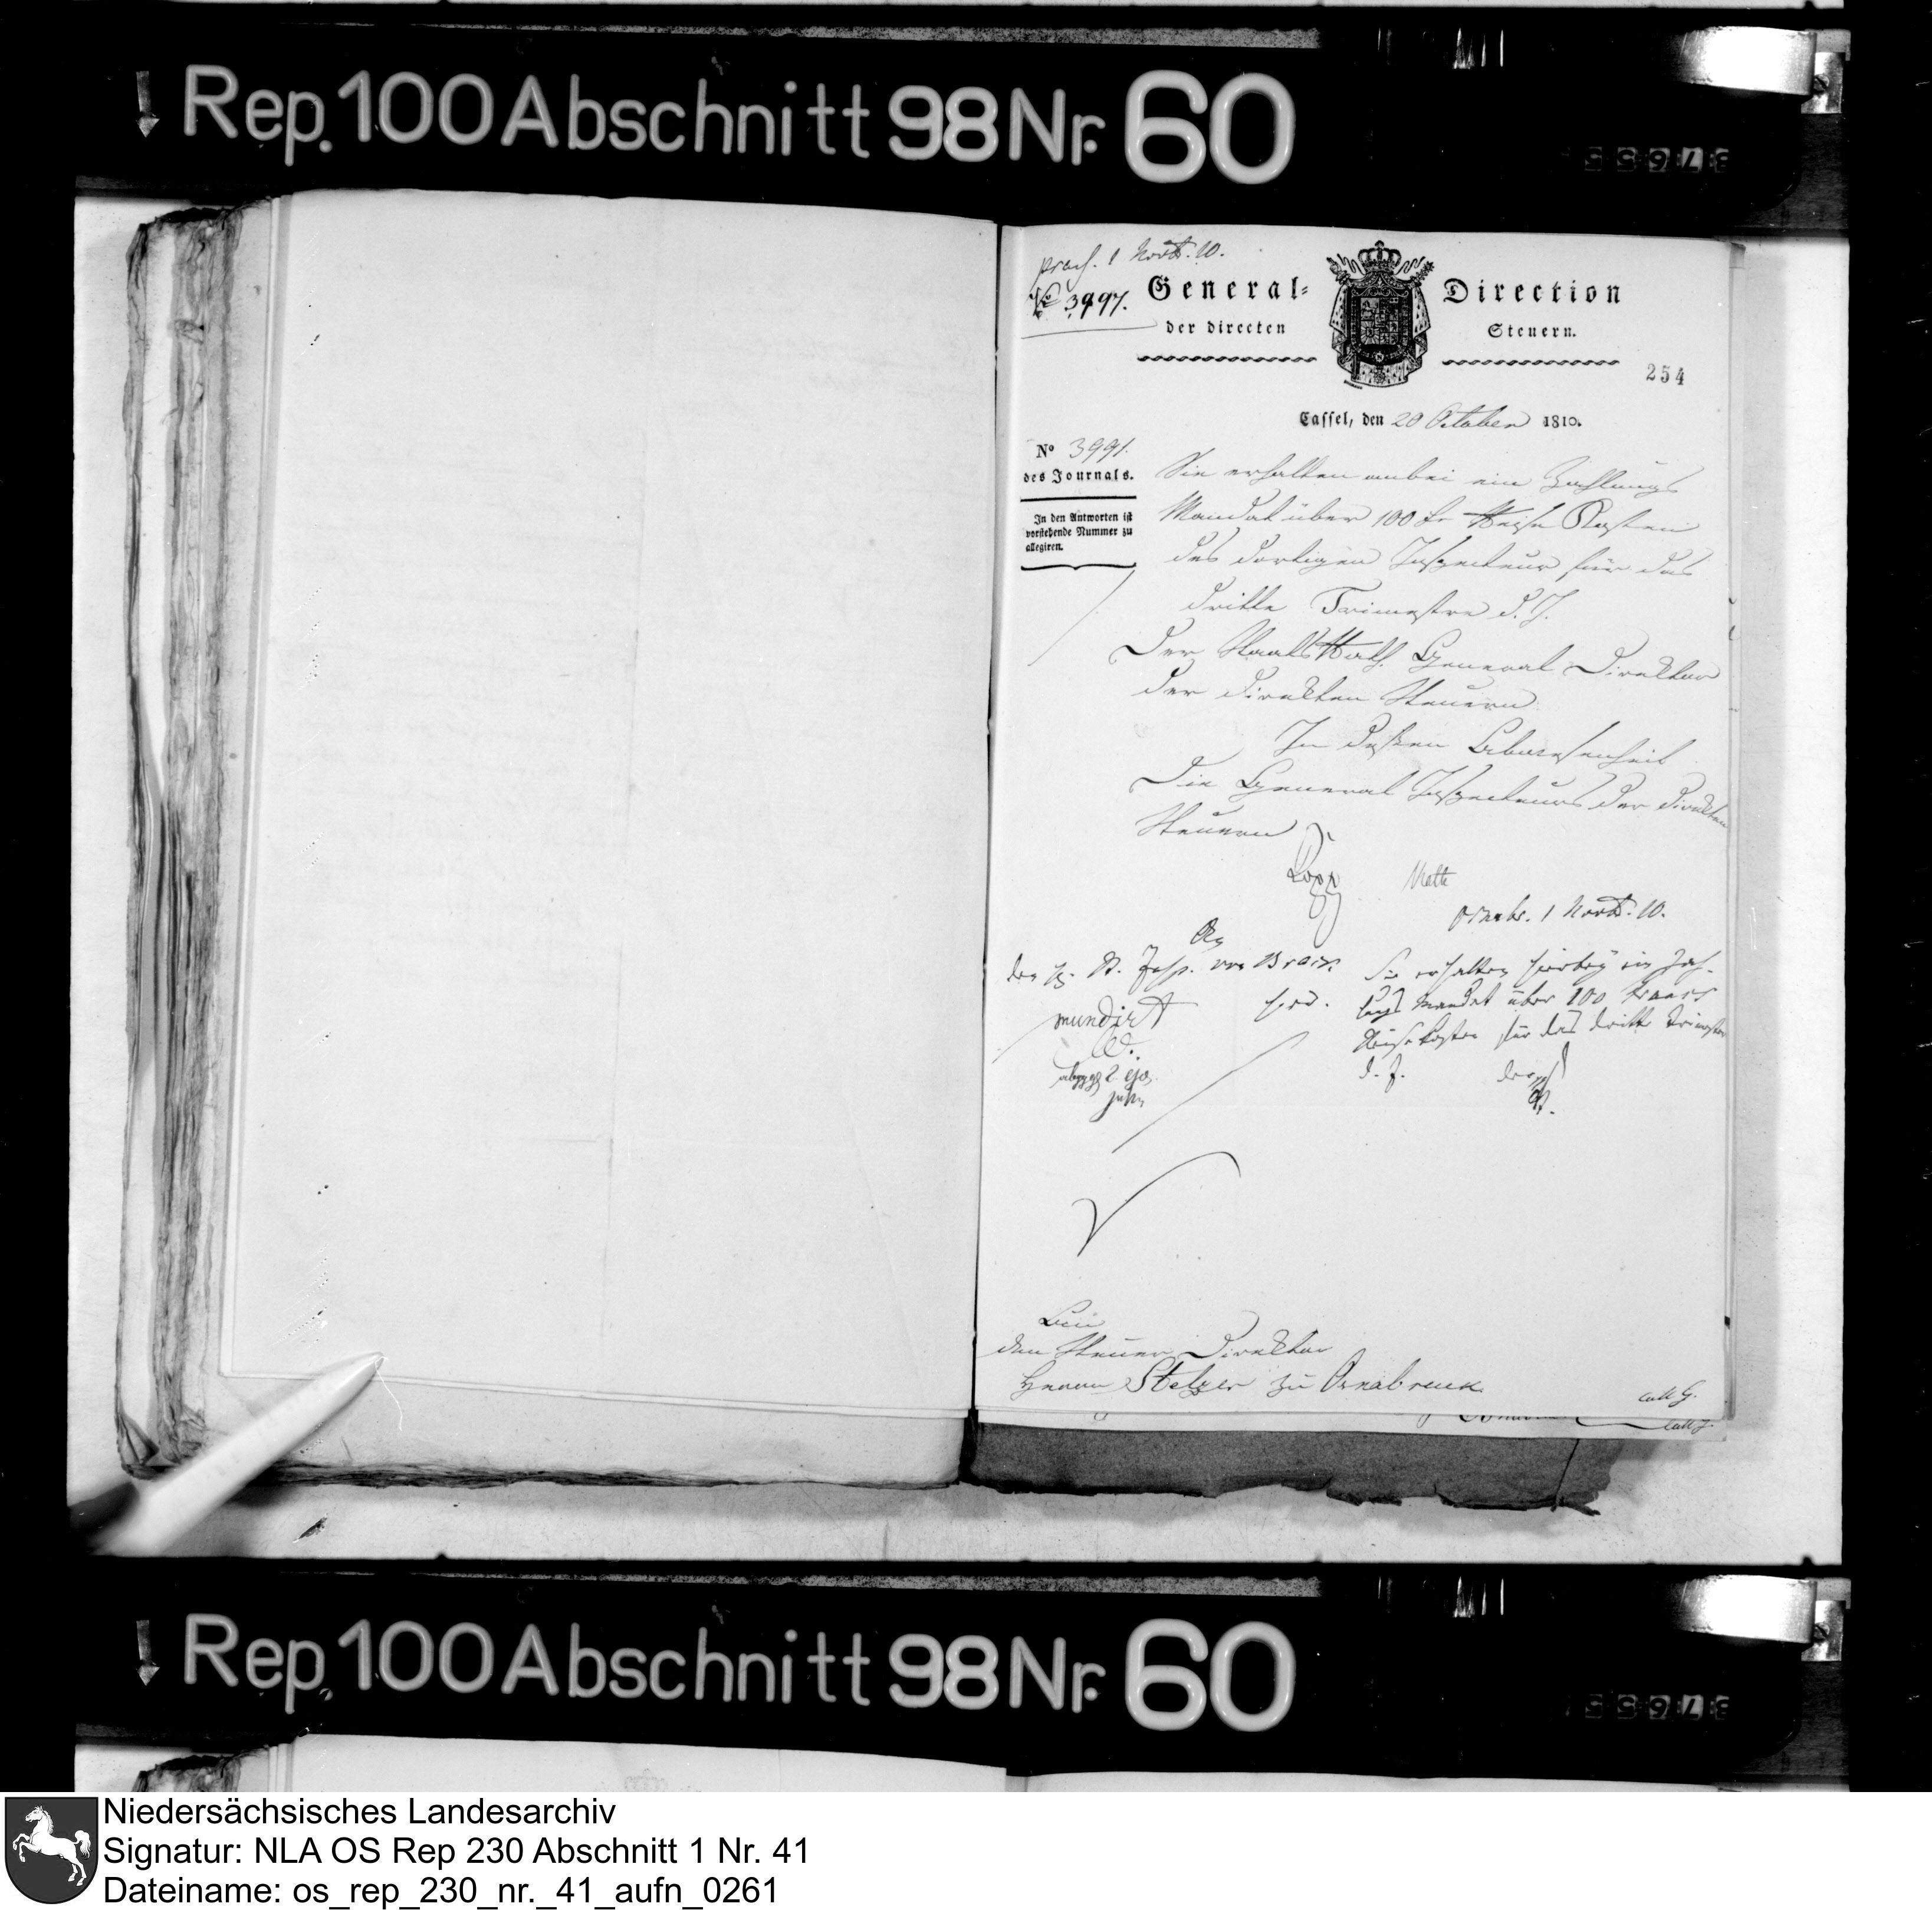 Rep. 100 Abschnitt 98 Nr. 60
praes. 1 Novbr. 10.
No 3997.
General- Direction
der directen Steuern.
254
Cassel, den 20 October 1810.
No 3991.
des Journals.
In den Antworten ist
vorstehende Nummer zu
allegiren.
Sie erhalten anbei ein Zahlungs
Mandat über 100 fr Reise Kosten
des dortigen Inspecteur für das
dritte Trimestre d. J.
Der StaatsRath General Direktor
der direkten Steuern
In dessen Abwesenheit
Die General Inspecteurs der direkten
Steuern
Osnabr. 1 Novbr. 10.
An
den H. St. Insp. von
hies.
Sie erhalten hierbey ein Zah-
lungs Mandat über 100 Francs
Reisekosten für das dritte Trimester
d. J.
mundirt
An
den Steuer Direktor
Herrn Stelzer zu Osnabrueck
Rep. 100 Abschnitt 98 Nr. 60
Niedersächsisches Landesarchiv
Signatur: NLA OS Rep 230 Abschnitt 1 Nr. 41
Dateiname: os_rep_230_nr._41_aufn_0261